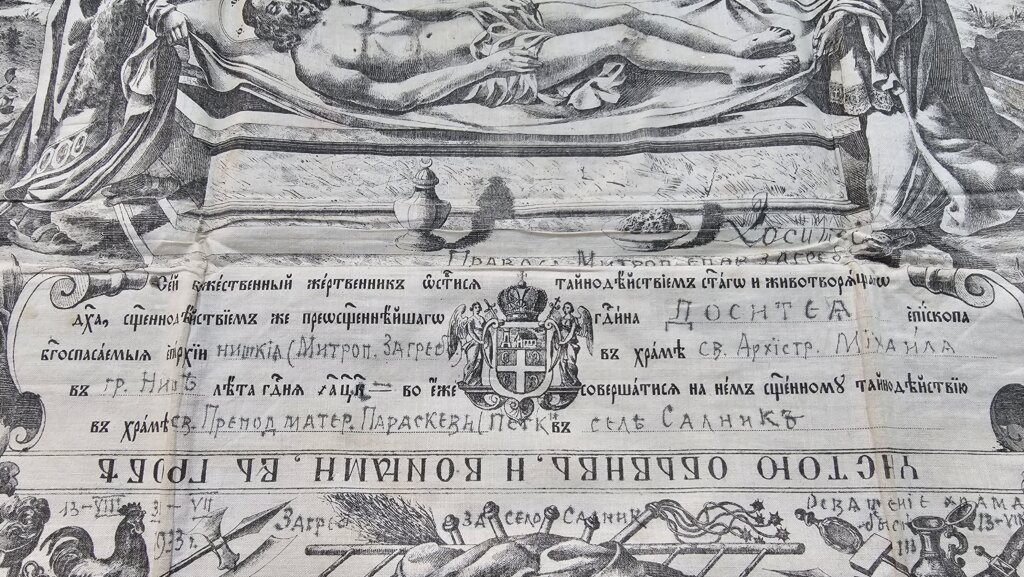 Досите
Правосл. Митроп. епар. Загреб
Сей бжественный жертвенникъ ѡст҃исѧ тайнодѣйствїемъ ст҃агѡ и животворѧщагѡ
дх҃а, сщ҃еннодѣйствїемъ же преѡсщ҃еннѣйшагѡ гдⷭ҇ина ДОСИТЕЯ епⷭ҇копа
бг҃оспасаемыѧ епархїи нишкія (Митроп. Загреб въ храмѣ св. Архістр. Міхаила
въ гр. Нишѣ лѣта гдⷭ҇нѧ во еже совершатисѧ на немъ сщ҃енному тайнодѣйствїю
въ храмѣ св. Препод матер. Параскеви (Петк въ селѣ Салникъ
ЧИСТОЮ ОБВИВЪ, И ВОНѦМИ, ВЪ ГРОБѢ
13-VIII 3-VII Загреб за село Салник Освашеніе храма
933 г. 13-VII